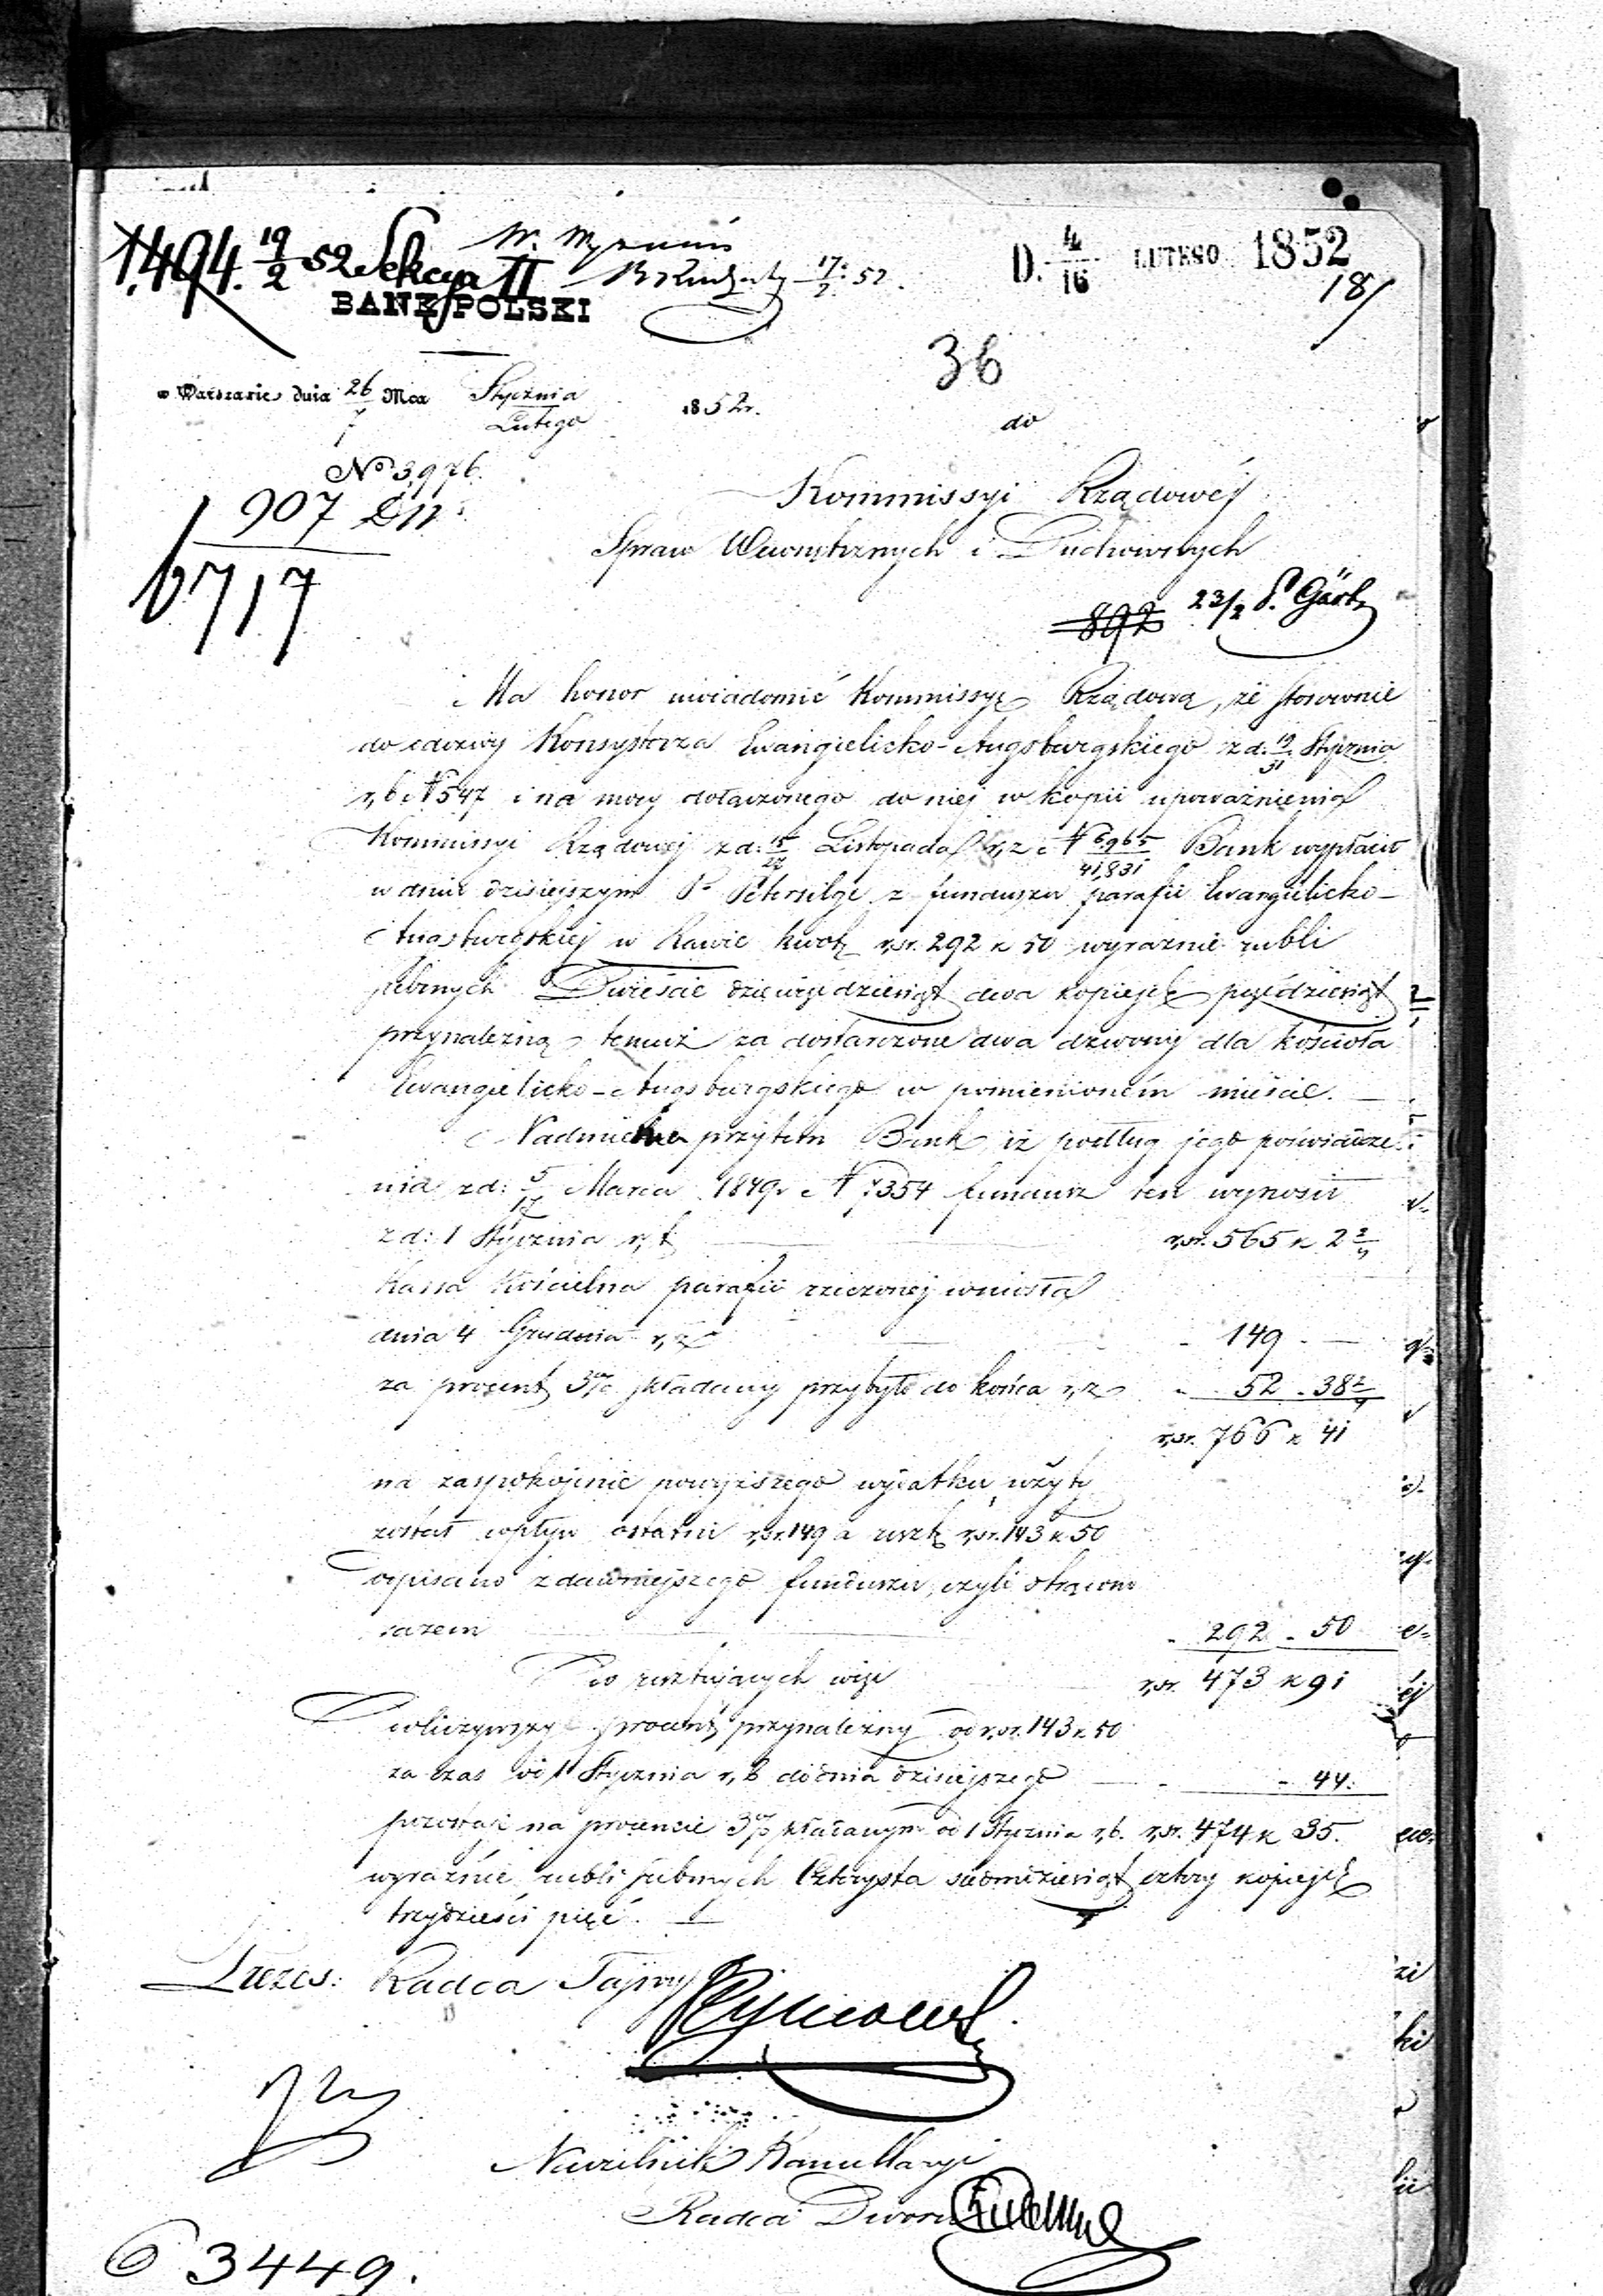 1494 19/2 52 Sekcya II
17/2 52.
D. 4/16 LUTEGO 1852
18/
BANK POLSKI
36
w Warszawie dnia 26/7 Mca Stycznia/Lutego 1852r.
do
No 3,976.
Kommissyi Rządowéj
907
Spraw Wewnętrznych i Duchownych
6717
892 23/2 P. Gärtz
Ma honor uwiadomić Kommissyę Rządową, że stosownie
do odezwy Konsystorza Ewangielicko-Augsburgskiego z d: 19/31 Stycznia
r, b N 547 i na mocy dołączonego do niej w kopii upoważnienia
Kommissyi Rządowej z d: 15/27 Listopada r, z N 6965/41,831 Bank wypłacił
w dniu dzisiejszym P. Petersilge z funduszu parafii Ewangielicko-
Augsburgskiej w Rawie kwotę rsr. 292 k 50 wyraźnie rubli
srebrnych Dwieście dziewięćdziesiąt dwa kopiejek pięćdziesiąt
przynależną temuż za dostarczone dwa dzwony dla kościoła
Ewangielicko-Augsburgskiego w pomienioném mieście.
Nadmienia przytém Bank, iż podług jego poświadcze-
nia z d: 5/17 Marca 1849r N 7354 fundusz ten wynosił
z d: 1 Stycznia r, t rsr. 565 k 2 3/4
Kassa Kościelna parafii rzeczonej wniosła
dnia 4 Grudnia r, z - 149 -
za procent 3% składany przybyło do końca r, z - 52 - 38 2/4
rsr. 766 k 41
na zaspokojenie powyższego wydatku użyty
został wpływ ostatni rsr. 149 a resztę rsr. 143 k 50
odpisano z dawniejszego funduszu, czyli strącono
razem - 292 - 50
Do resztujących więc rsr. 473 k 91
Doliczywszy procent przynależny od rsr. 143 k 50
za czas od 1 Stycznia r, b do dnia dzisiejszego - - 44.
pozostaje na procencie 3% składanym od 1 Stycznia r, b. rsr. 474 k 35.
wyraźnie rubli srebrnych Czterysta siedmdziesiąt cztery kopiejek
trzydzieści pięć.
Prezes: Radca Tajny
Naczelnik Kancellaryi
Radca Dworu
3449.